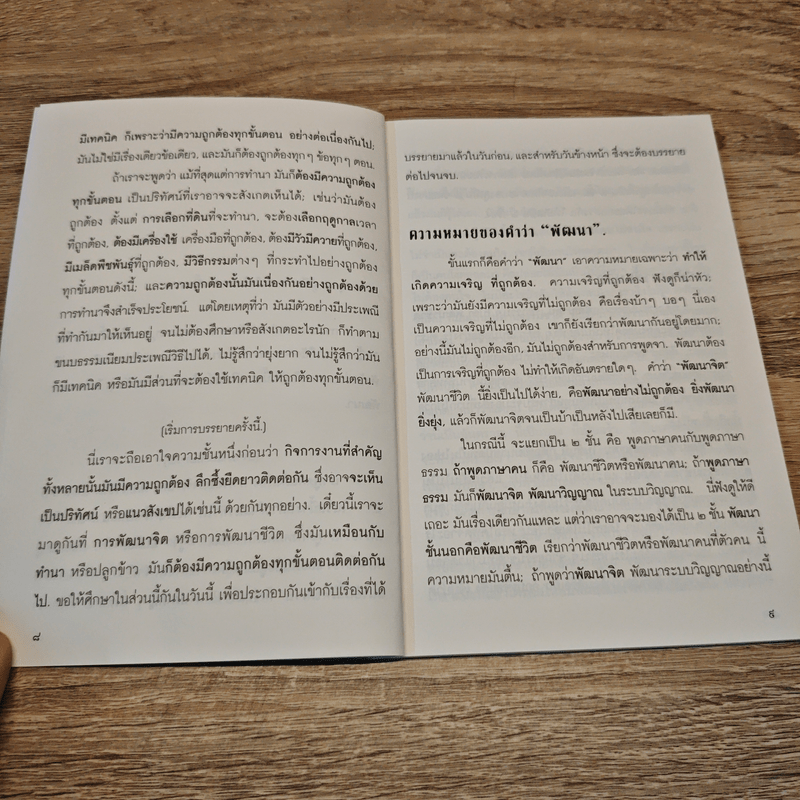 มีเทคนิค ก็เพราะว่ามีความถูกต้องทุกขั้นตอน อย่างต่อเนื่องกันไป;
มันไม่ใช่มีเรื่องเดียวข้อเดียว, และมันก็ต้องถูกต้องทุกๆ ข้อทุกๆ ตอน.
ถ้าเราจะพูดว่า แม้ที่สุดแต่การทำนา มันก็ต้องมีความถูกต้อง
ทุกขั้นตอน เป็นปริทัศน์ที่เราอาจจะสังเกตเห็นได้; เช่นว่ามันต้อง
ถูกต้อง ตั้งแต่ การเลือกที่ดินที่จะทำนา, จะต้องเลือกฤดูกาลเวลา
ที่ถูกต้อง, ต้องมีเครื่องใช้ เครื่องมือที่ถูกต้อง, ต้องมีวัวมีควายที่ถูกต้อง,
มีเมล็ดพืชพันธุ์ที่ถูกต้อง, มีวิธีกรรมต่างๆ ที่กระทำไปอย่างถูกต้อง
ทุกขั้นตอนดังนี้; และความถูกต้องนั้นมันเนื่องกันอย่างถูกต้องด้วย
การทำนาจึงสำเร็จประโยชน์. แต่โดยเหตุที่ว่า มันมีตัวอย่างมีประเพณี
ที่ทำกันมาให้เห็นอยู่ จนไม่ต้องศึกษาหรือสังเกตอะไรนัก ก็ทำตาม
ขนบธรรมเนียมประเพณีวิธีไปได้, ไม่รู้สึกว่ายุ่งยาก จนไม่รู้สึกว่ามัน
ก็มีเทคนิค หรือมันมีส่วนที่จะต้องใช้เทคนิค ให้ถูกต้องทุกขั้นตอน.
(เริ่มการบรรยายครั้งนี้.)
นี่เราจะถือเอาใจความชั้นหนึ่งก่อนว่า กิจการงานที่สำคัญ
ทั้งหลายนั้นมันมีความถูกต้อง ลึกซึ้งยืดยาวติดต่อกัน ซึ่งอาจจะเห็น
เป็นปริทัศน์ หรือแนวสังเขปได้เช่นนี้ ด้วยกันทุกอย่าง. เดี๋ยวนี้เราจะ
มาดูกันที่ การพัฒนาจิต หรือการพัฒนาชีวิต ซึ่งมันเหมือนกับ
ทำนา หรือปลูกข้าว มันก็ต้องมีความถูกต้องทุกขั้นตอนติดต่อกัน
ไป. ขอให้ศึกษาในส่วนนี้กันในวันนี้ เพื่อประกอบกันเข้ากับเรื่องที่ได้
๘
บรรยายมาแล้วในวันก่อน, และสำหรับวันข้างหน้า ซึ่งจะต้องบรรยาย
ต่อไปจนจบ.
ความหมายของคำว่า "พัฒนา".
ชั้นแรกก็คือคำว่า "พัฒนา" เอาความหมายเฉพาะว่า ทำให้
เกิดความเจริญ ที่ถูกต้อง. ความเจริญที่ถูกต้อง ฟังดูก็น่าหัว;
เพราะว่ามันยังมีความเจริญที่ไม่ถูกต้อง คือเรื่องบ้าๆ บอๆ นี่เอง
เป็นความเจริญที่ไม่ถูกต้อง เขาก็ยังเรียกว่าพัฒนากันอยู่โดยมาก;
อย่างนี้มันไม่ถูกต้องอีก, มันไม่ถูกต้องสำหรับการพูดจา. พัฒนาต้อง
เป็นการเจริญที่ถูกต้อง ไม่ทำให้เกิดอันตรายใดๆ. คำว่า "พัฒนาจิต"
พัฒนาชีวิต นี้ยิ่งเป็นไปได้ง่าย, คือพัฒนาอย่างไม่ถูกต้อง ยิ่งพัฒนา
ยิ่งยุ่ง, แล้วก็พัฒนาจิตจนเป็นบ้าเป็นหลังไปเสียเลยก็มี.
ในกรณีนี้ จะแยกเป็น ๒ ชั้น คือ พูดภาษาคนกับพูดภาษา
ธรรม ถ้าพูดภาษาคน ก็คือ พัฒนาชีวิตหรือพัฒนาคน; ถ้าพูดภาษา
ธรรม มันก็พัฒนาจิต พัฒนาวิญญาณ ในระบบวิญญาณ. นี่ฟังดูให้ดี
เถอะ มันเรื่องเดียวกันแหละ แต่ว่าเราอาจจะมองได้เป็น ๒ ชั้น พัฒนา
ชั้นนอกคือพัฒนาชีวิต เรียกว่าพัฒนาชีวิตหรือพัฒนาคนที่ตัวคน นี้
ความหมายมันตื้น; ถ้าพูดว่าพัฒนาจิต พัฒนาระบบวิญญาณอย่างนี้
๙